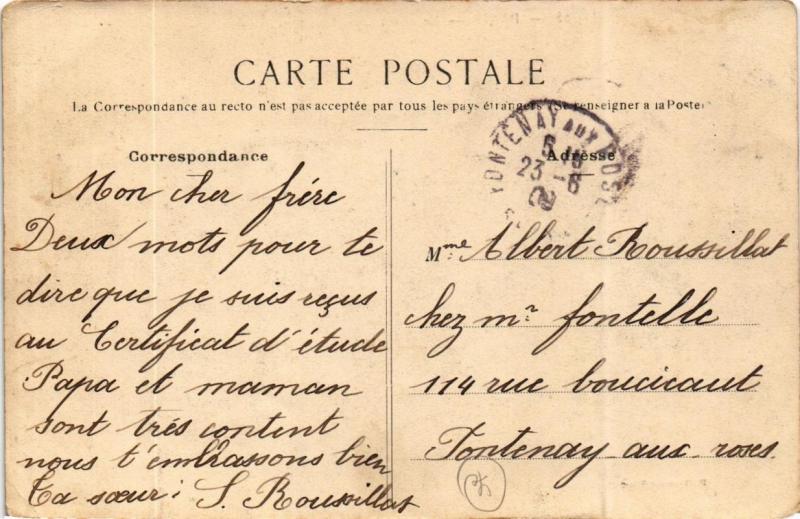 CARTE POSTALE
La Correspondance au recto n'est pas acceptée par tous les pays étrangers (Se renseigner à la Poste)
Correspondance
Mon cher frére
Deux mots pour te
dire que je suis reçus
au Certificat d'étude
Papa et maman
sont trés content
nous t'embrassons bien
Ta sœur: S. Roussillat
FONTENAY AUX ROSES
23 -8
Adresse
Mme Albert Roussillat
chez mr fontelle
114 rue boucicaut
Fontenay aux roses